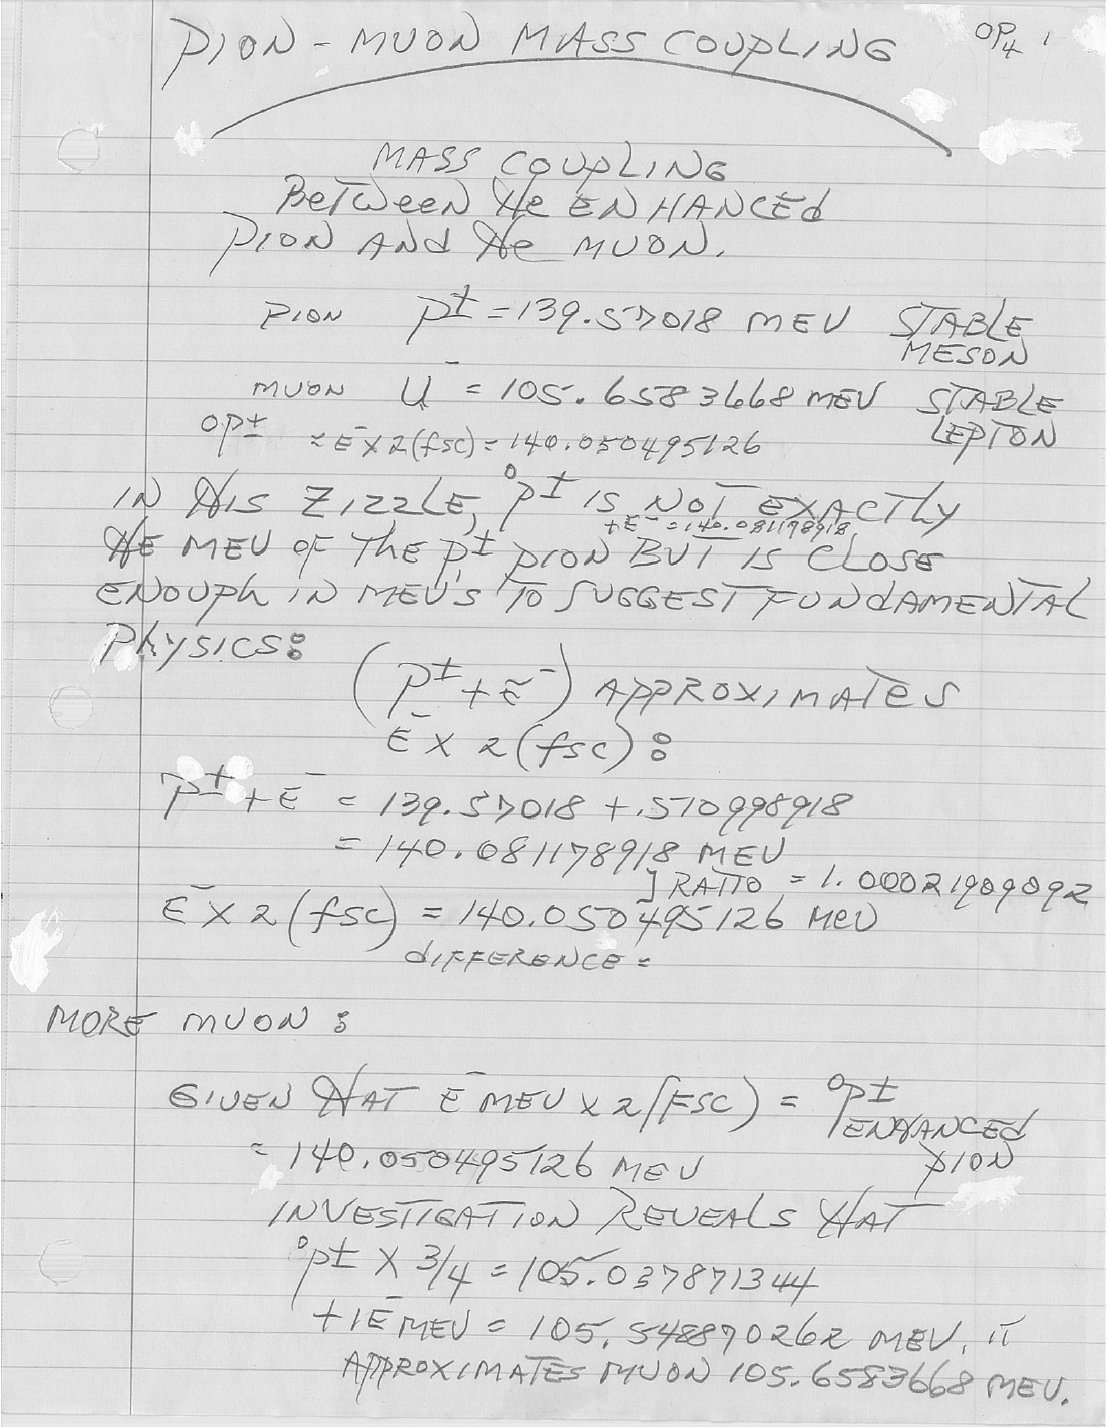 PION - MUON MASS COUPLING
OP4 1
MASS COUPLING
BETWEEN THE ENHANCED
PION AND THE MUON.
PION P± = 139.57018 MEV STABLE
MESON
MUON U⁻ = 105.6583668 MEV STABLE
LEPTON
OP± = E⁻ X 2(fsc) = 140.050495126
IN THIS ZIZZLE, °P± IS NOT EXACTLY
+E⁻ = 140.081178918
THE MEV OF THE P± PION BUT IS CLOSE
ENOUPH IN MEV'S TO SUGGEST FUNDAMENTAL
PHYSICS:
(P± + E⁻) APPROXIMATES
E⁻ X 2(fsc):
P± + E⁻ = 139.57018 + .510998918
= 140.081178918 MEV
] RATIO = 1.00021909092
E⁻ X 2(fsc) = 140.050495126 MEV
DIFFERENCE =
MORE MUON:
GIVEN THAT E⁻ MEV X 2(FSC) = °P±
ENHANCED
PION
= 140.050495126 MEV
INVESTIGATION REVEALS THAT
°P± X 3/4 = 105.037871344
+1E⁻ MEV = 105.548870262 MEV. IT
APPROXIMATES MUON 105.6583668 MEV.